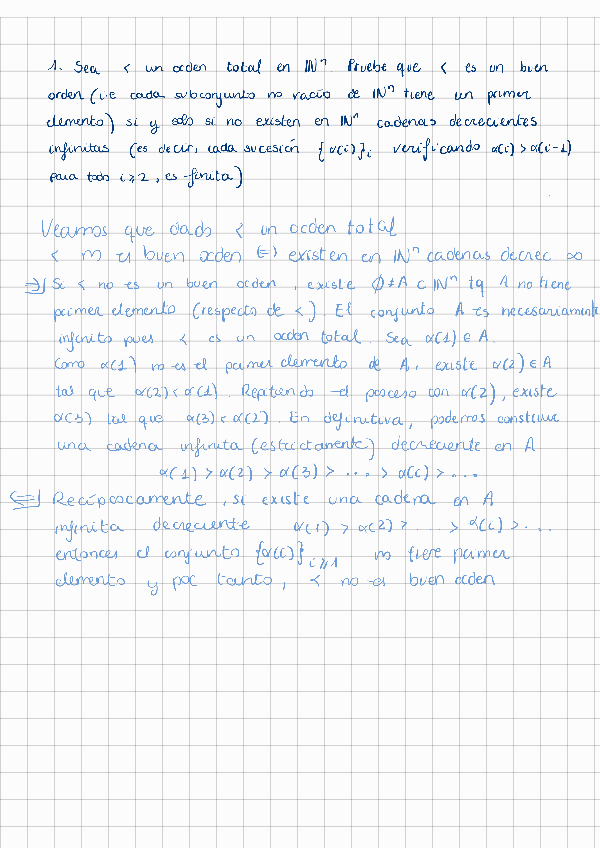 1. Sea < un orden total en ℕⁿ. Pruebe que < es un buen
orden (i.e cada subconjunto no vacío de ℕⁿ tiene un primer
elemento) si y solo si no existen en ℕⁿ cadenas decrecientes
infinitas (es decir, cada sucesión {α(i)}ᵢ verificando α(i) > α(i-1)
para todo i ≥ 2, es finita)
Veamos que dado < un orden total
< no es buen orden ⇔ existen en ℕⁿ cadenas decrec ∞
⇒| Si < no es un buen orden, existe ∅ ≠ A ⊂ ℕⁿ tq A no tiene
primer elemento (respecto de <). El conjunto A es necesariamente
infinito pues < es un orden total. Sea α(1) ∈ A.
Como α(1) no es el primer elemento de A, existe α(2) ∈ A
tal que α(2) < α(1). Repitiendo el proceso con α(2), existe
α(3) tal que α(3) < α(2). En definitiva, podemos construir
una cadena infinita (estrictamente) decreciente en A
α(1) > α(2) > α(3) > ... > α(i) > ...
⇐| Recíprocamente, si existe una cadena en A
infinita decreciente α(1) > α(2) > ... > α(i) > ...
entonces el conjunto {α(i)}ᵢ≥₁ no tiene primer
elemento y por tanto, < no es buen orden